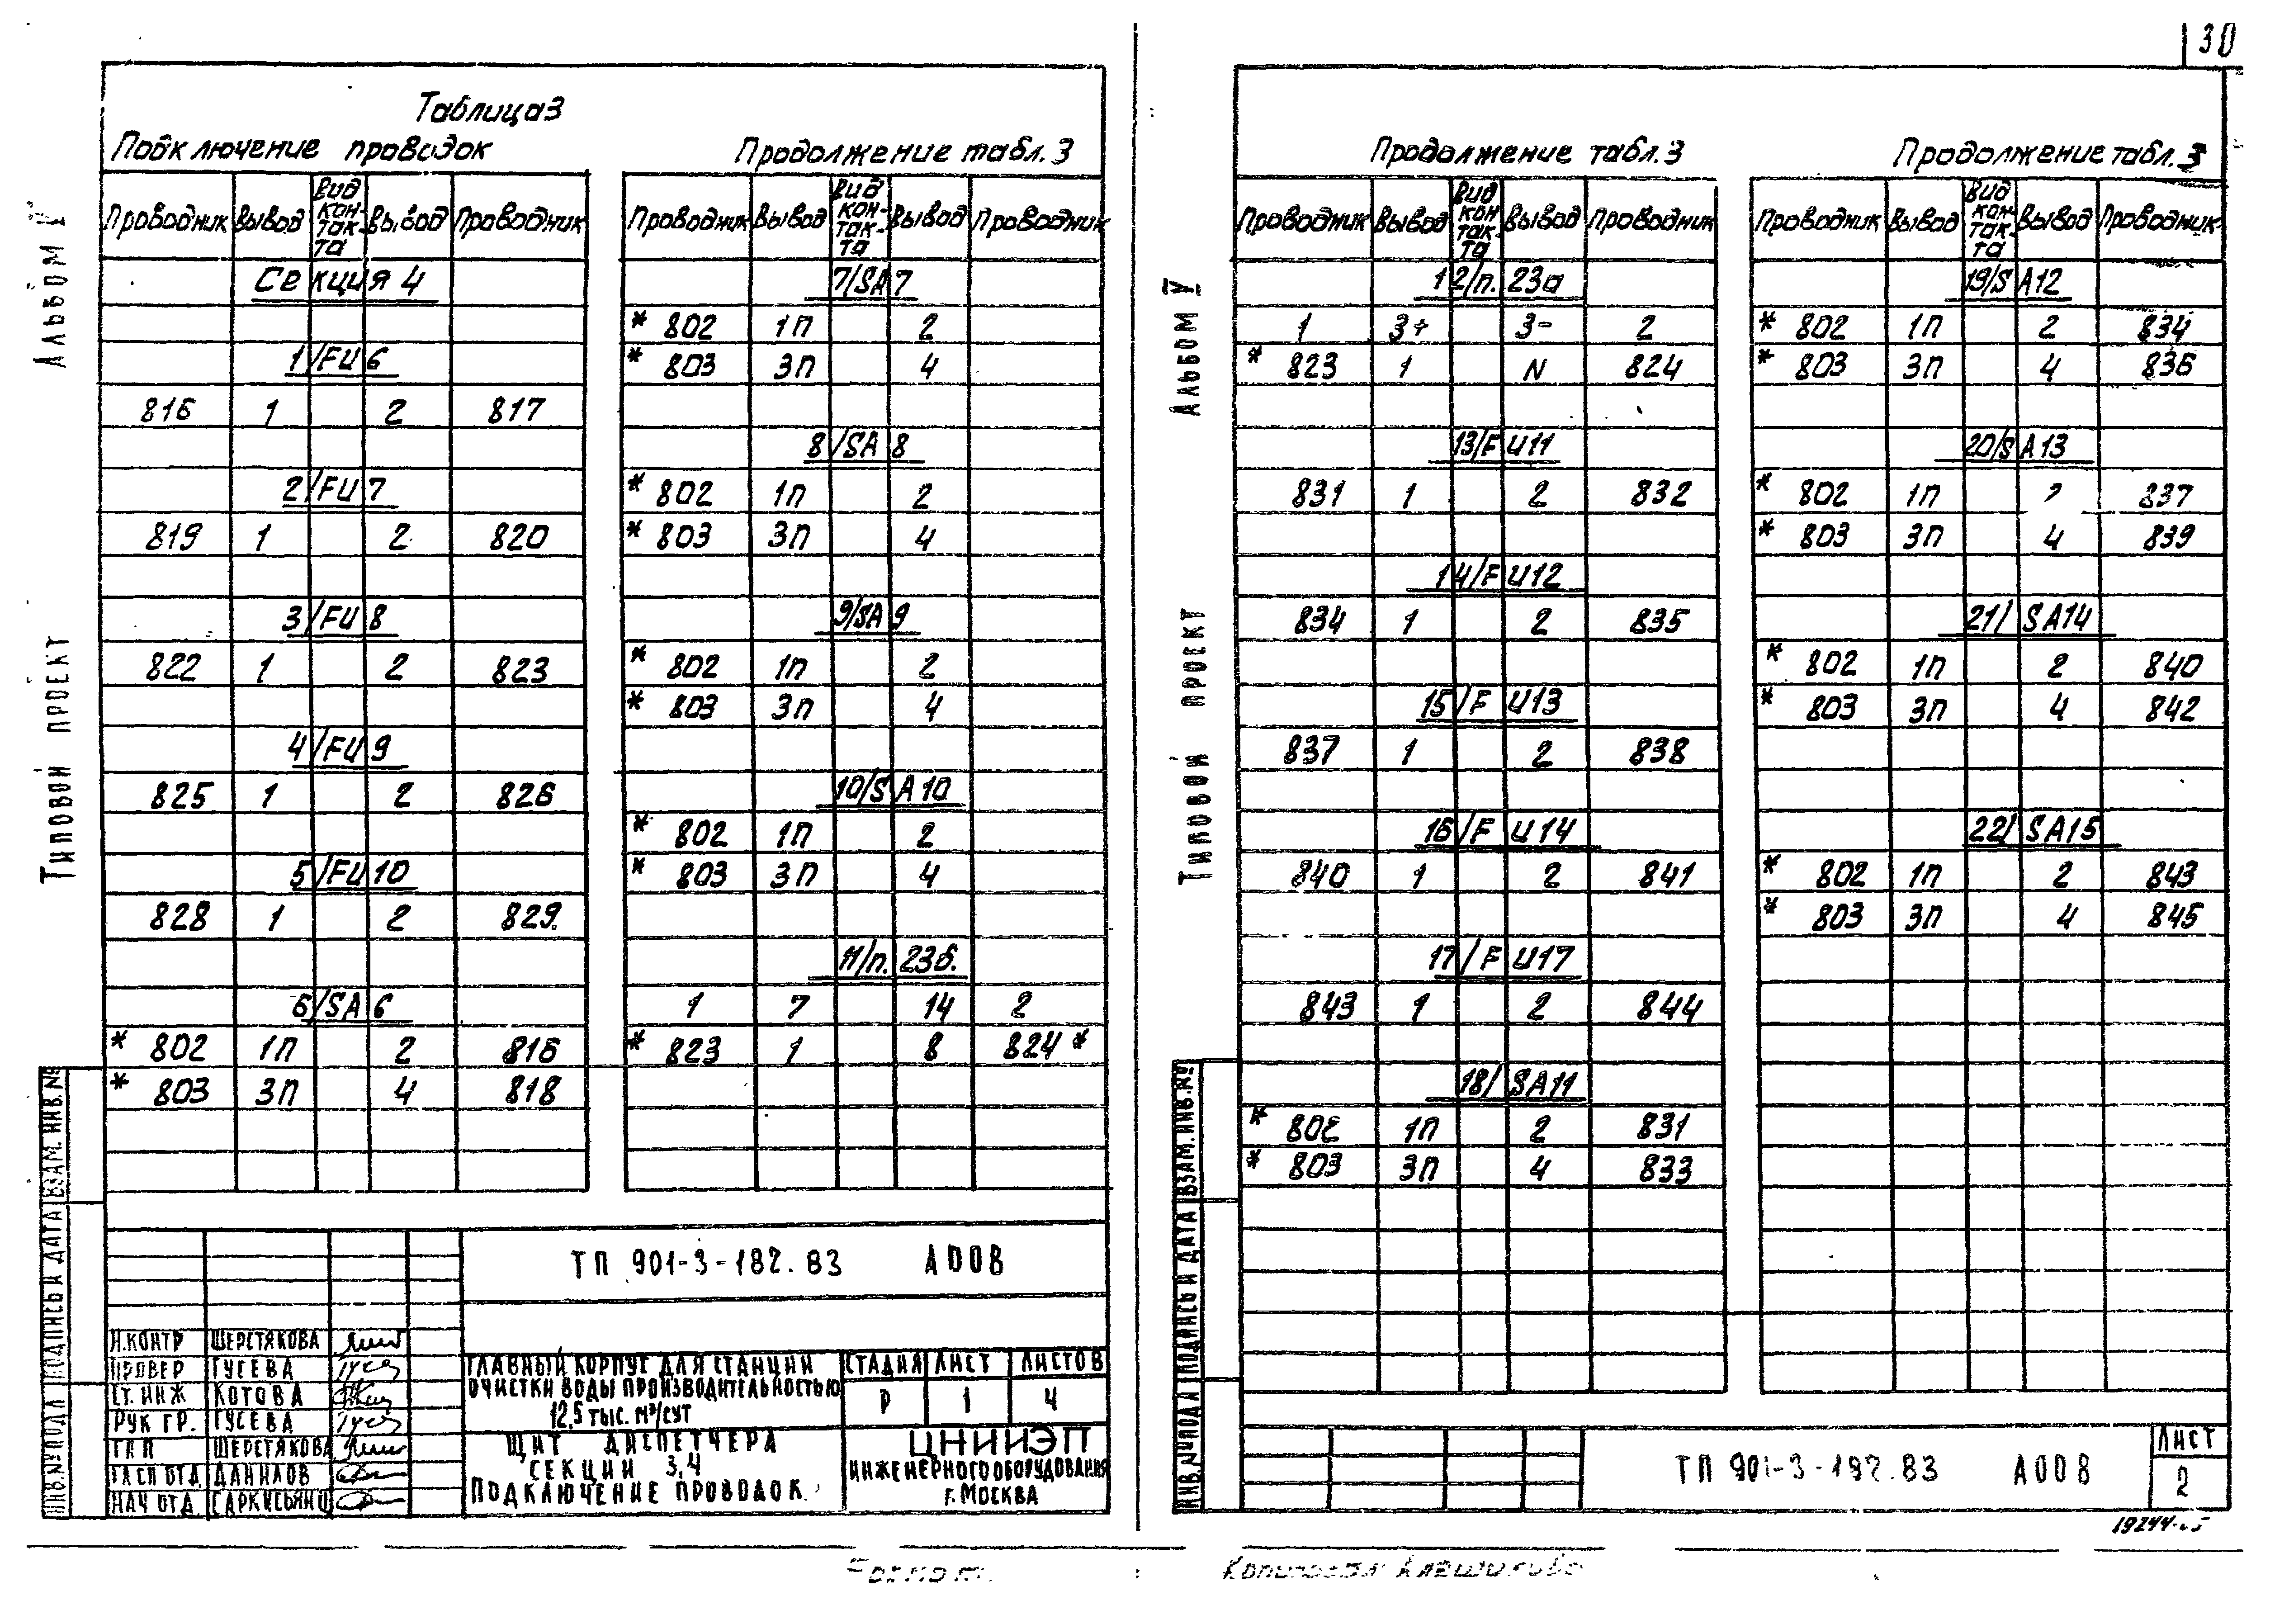 30
Таблица 3
Подключение проводок
Проводник Вывод Вид контакта Вывод Проводник
Секция 4
1/FU6
816 1 2 817
2/FU7
819 1 2 820
3/FU8
822 1 2 823
4/FU9
825 1 2 826
5/FU10
828 1 2 829.
6/SA6
* 802 1П 2 816
* 803 3П 4 818
Продолжение табл. 3
Проводник Вывод Вид кон-так-та Вывод Проводник
7/SA7
* 802 1П 2
* 803 3П 4
8/SA8
* 802 1П 2
* 803 3П 4
9/SA9
* 802 1П 2
* 803 3П 4
10/SA10
* 802 1П 2
* 803 3П 4
11/п. 23б.
1 7 14 2
* 823 1 8 824 *
АЛЬБОМ V
ТИПОВОЙ ПРОЕКТ
ИНВ.№ПОДЛ ПОДПИСЬ И ДАТА ВЗАМ. ИНВ.№
ТП 901-3-182.83 АОО8
Н.КОНТР ШЕРСТЯКОВА
ПРОВЕР ГУСЕВА
СТ. ИНЖ КОТОВА
РУК ГР. ГУСЕВА
ГИП ШЕРСТЯКОВА
ГЛ СП ОТД. ДАНИЛОВ
НАЧ ОТД. САРКИСЬЯНЦ
ГЛАВНЫЙ КОРПУС ДЛЯ СТАНЦИИ
ОЧИСТКИ ВОДЫ ПРОИЗВОДИТЕЛЬНОСТЬЮ
12,5 ТЫС. М³/СУТ
СТАДИЯ ЛИСТ ЛИСТОВ
Р 1 4
ЩИТ ДИСПЕТЧЕРА
СЕКЦИИ 3,4
ПОДКЛЮЧЕНИЕ ПРОВОДОК.
ЦНИИЭП
ИНЖЕНЕРНОГО ОБОРУДОВАНИЯ
Г. МОСКВА
Продолжение табл. 3
Проводник Вывод Вид кон так-та Вывод Проводник
12/п. 23а
1 3+ 3- 2
* 823 1 N 824
13/FU11
831 1 2 832
14/FU12
834 1 2 835
15/FU13
837 1 2 838
16/FU14
840 1 2 841
17/FU17
843 1 2 844
18/SA11
* 802 1П 2 831
* 803 3П 4 833
Продолжение табл. 3
Проводник Вывод Вид кон так-та Вывод Проводник
19/SA12
* 802 1П 2 834
* 803 3П 4 836
20/SA13
* 802 1П 2 837
* 803 3П 4 839
21/SA14
* 802 1П 2 840
* 803 3П 4 842
22/SA15
* 802 1П 2 843
* 803 3П 4 845
АЛЬБОМ V
ТИПОВОЙ ПРОЕКТ
ИНВ.№ПОДЛ ПОДПИСЬ И ДАТА ВЗАМ.ИНВ.№
ТП 901-3-182.83 АОО8
ЛИСТ
2
Формат
Копировал